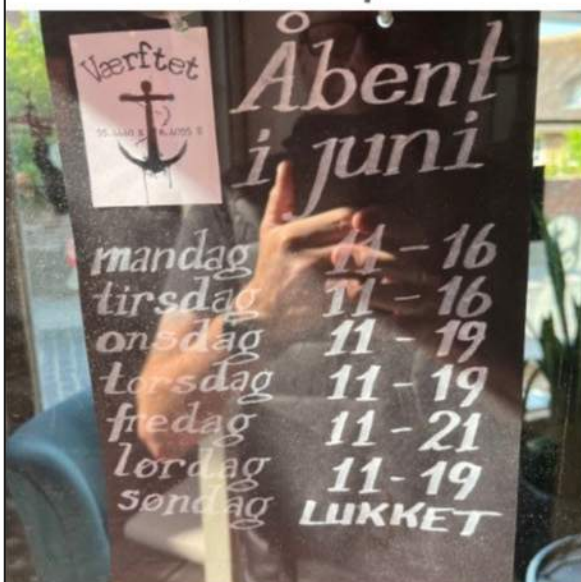 Værftet
Åbent
i juni
mandag 11 - 16
tirsdag 11 - 16
onsdag 11 - 19
torsdag 11 - 19
fredag 11 - 21
lørdag 11 - 19
søndag LUKKET